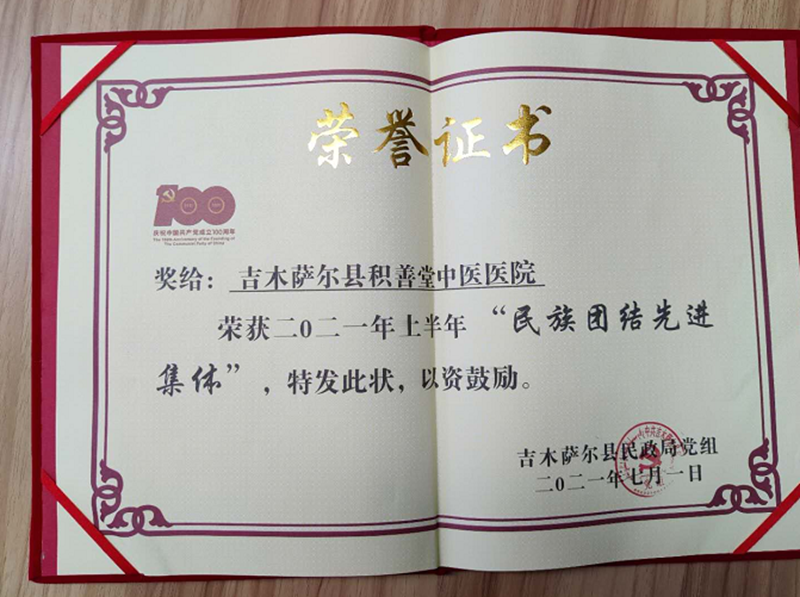 荣誉证书
100
庆祝中国共产党成立100周年
The 100th Anniversary of the Founding of
The Communist Party of China
奖给：吉木萨尔县积善堂中医医院
荣获二〇二一年上半年“民族团结先进
集体”，特发此状，以资鼓励。
吉木萨尔县民政局党组
二〇二一年七月一日